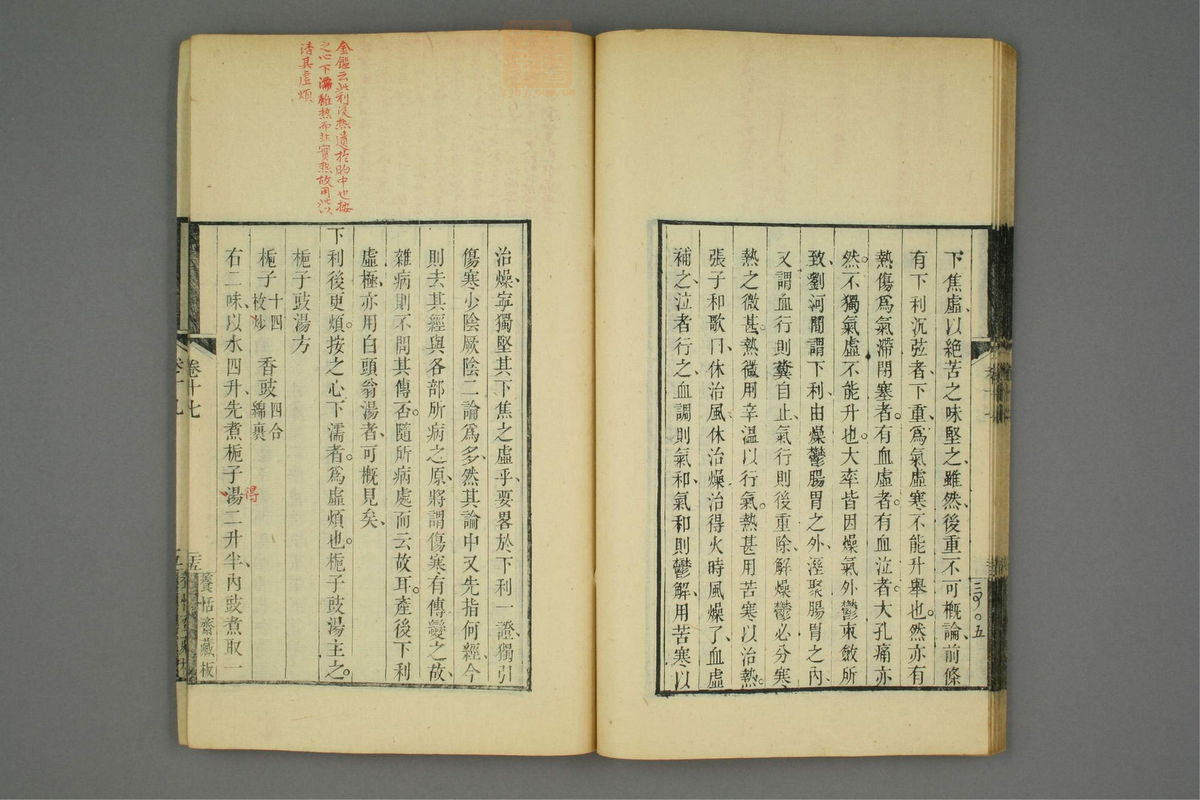 下焦虛、以絕苦之味堅之、雖然後重不可概論、前條
有下利沉弦者、下重、爲氣虛寒不能升舉也。然亦有
熱傷爲氣滯閉塞者。有血虛者。有血泣者。大孔痛亦
然。不獨氣虛不能升也。大率皆因燥氣外鬱束斂所
致、劉河間謂下利由燥鬱腸胃之外、溼聚腸胃之內、
又謂血行則糞自止、氣行則後重除、解燥鬱必分寒
熱之微甚。熱微用辛溫以行氣。熱甚用苦寒以治熱。
張子和歌曰、休治風休治燥治得火時風燥了、血虛
補之、泣者行之、血調則氣和、氣和則鬱解、用苦寒以
三〇五
治燥、寧獨堅其下焦之虛乎、要畧於下利一證、獨引
傷寒少陰厥陰二論爲多、然其論中又先指何經、今
則去其經與各部所病之原、將謂傷寒有傳變之故、
雜病則不問其傳否。隨所病處而云故耳。產後下利
虛極、亦用白頭翁湯者、可概見矣、
下利後更煩。按之心下濡者。爲虛煩也。梔子豉湯主之。
梔子豉湯方
梔子十四枚炒 香豉四合綿裹
右二味、以水四升、先煮梔子湯二升半、內豉煮取一
得
卷十七
養恬齋藏板
金鑑云此利後熱遺於胸中也按
之心下濡雖熱而非實熱故用此以
清其虛煩